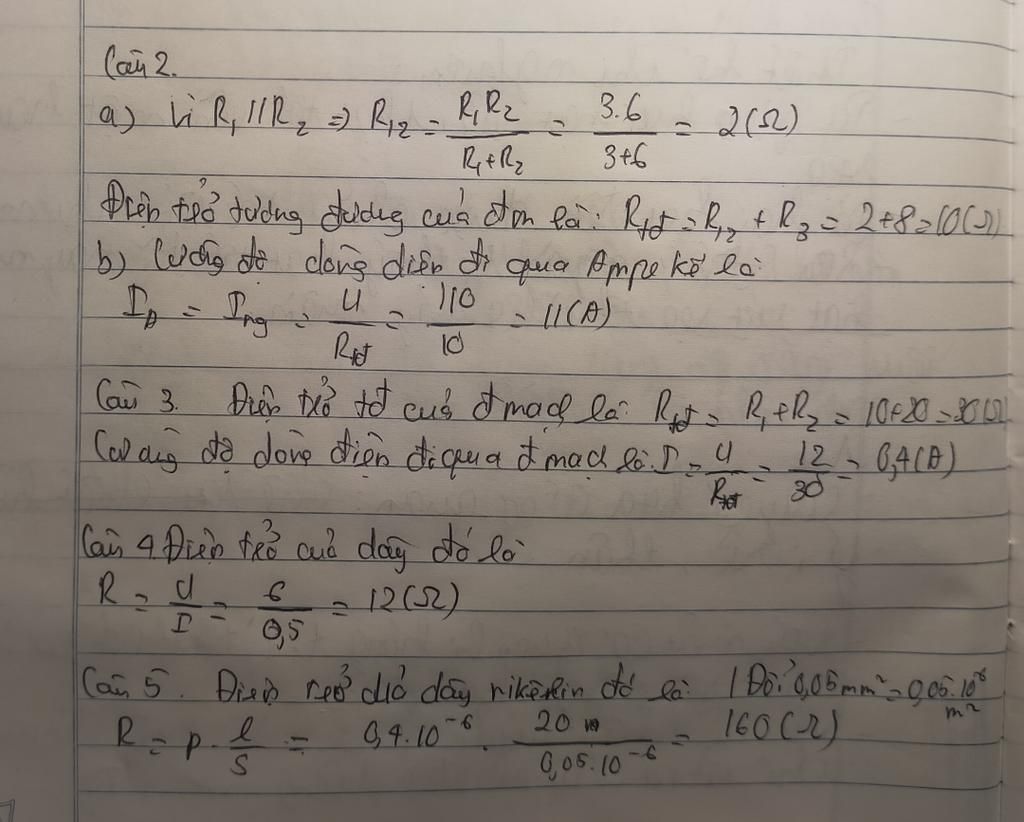 Câu 2.
a) Vì R₁//R₂ ⇒ R₁₂ = R₁R₂/(R₁+R₂) = 3.6/(3+6) = 2(Ω)
Điện trở tương đương của đm là: Rtđ = R₁₂ + R₃ = 2+8=10(Ω)
b) Cường độ dòng điện đi qua Ampe kế là:
I_A = I_ng = U/Rtđ = 110/10 = 11(A)
Câu 3. Điện trở tđ của đmạch là: Rtđ = R₁+R₂ = 10+20=30(Ω)
Cường độ dòng điện đi qua đmạch là: I = U/Rtđ = 12/30 = 0,4(A)
Câu 4. Điện trở của dây đó là
R = U/I = 6/0,5 = 12(Ω)
Câu 5. Điện trở của dây nikêlin đó là: | Đổi 0,05mm²=0,05.10⁻⁶ m²
R = p.l/S = 0,4.10⁻⁶ . 20/(0,05.10⁻⁶) = 160(Ω)